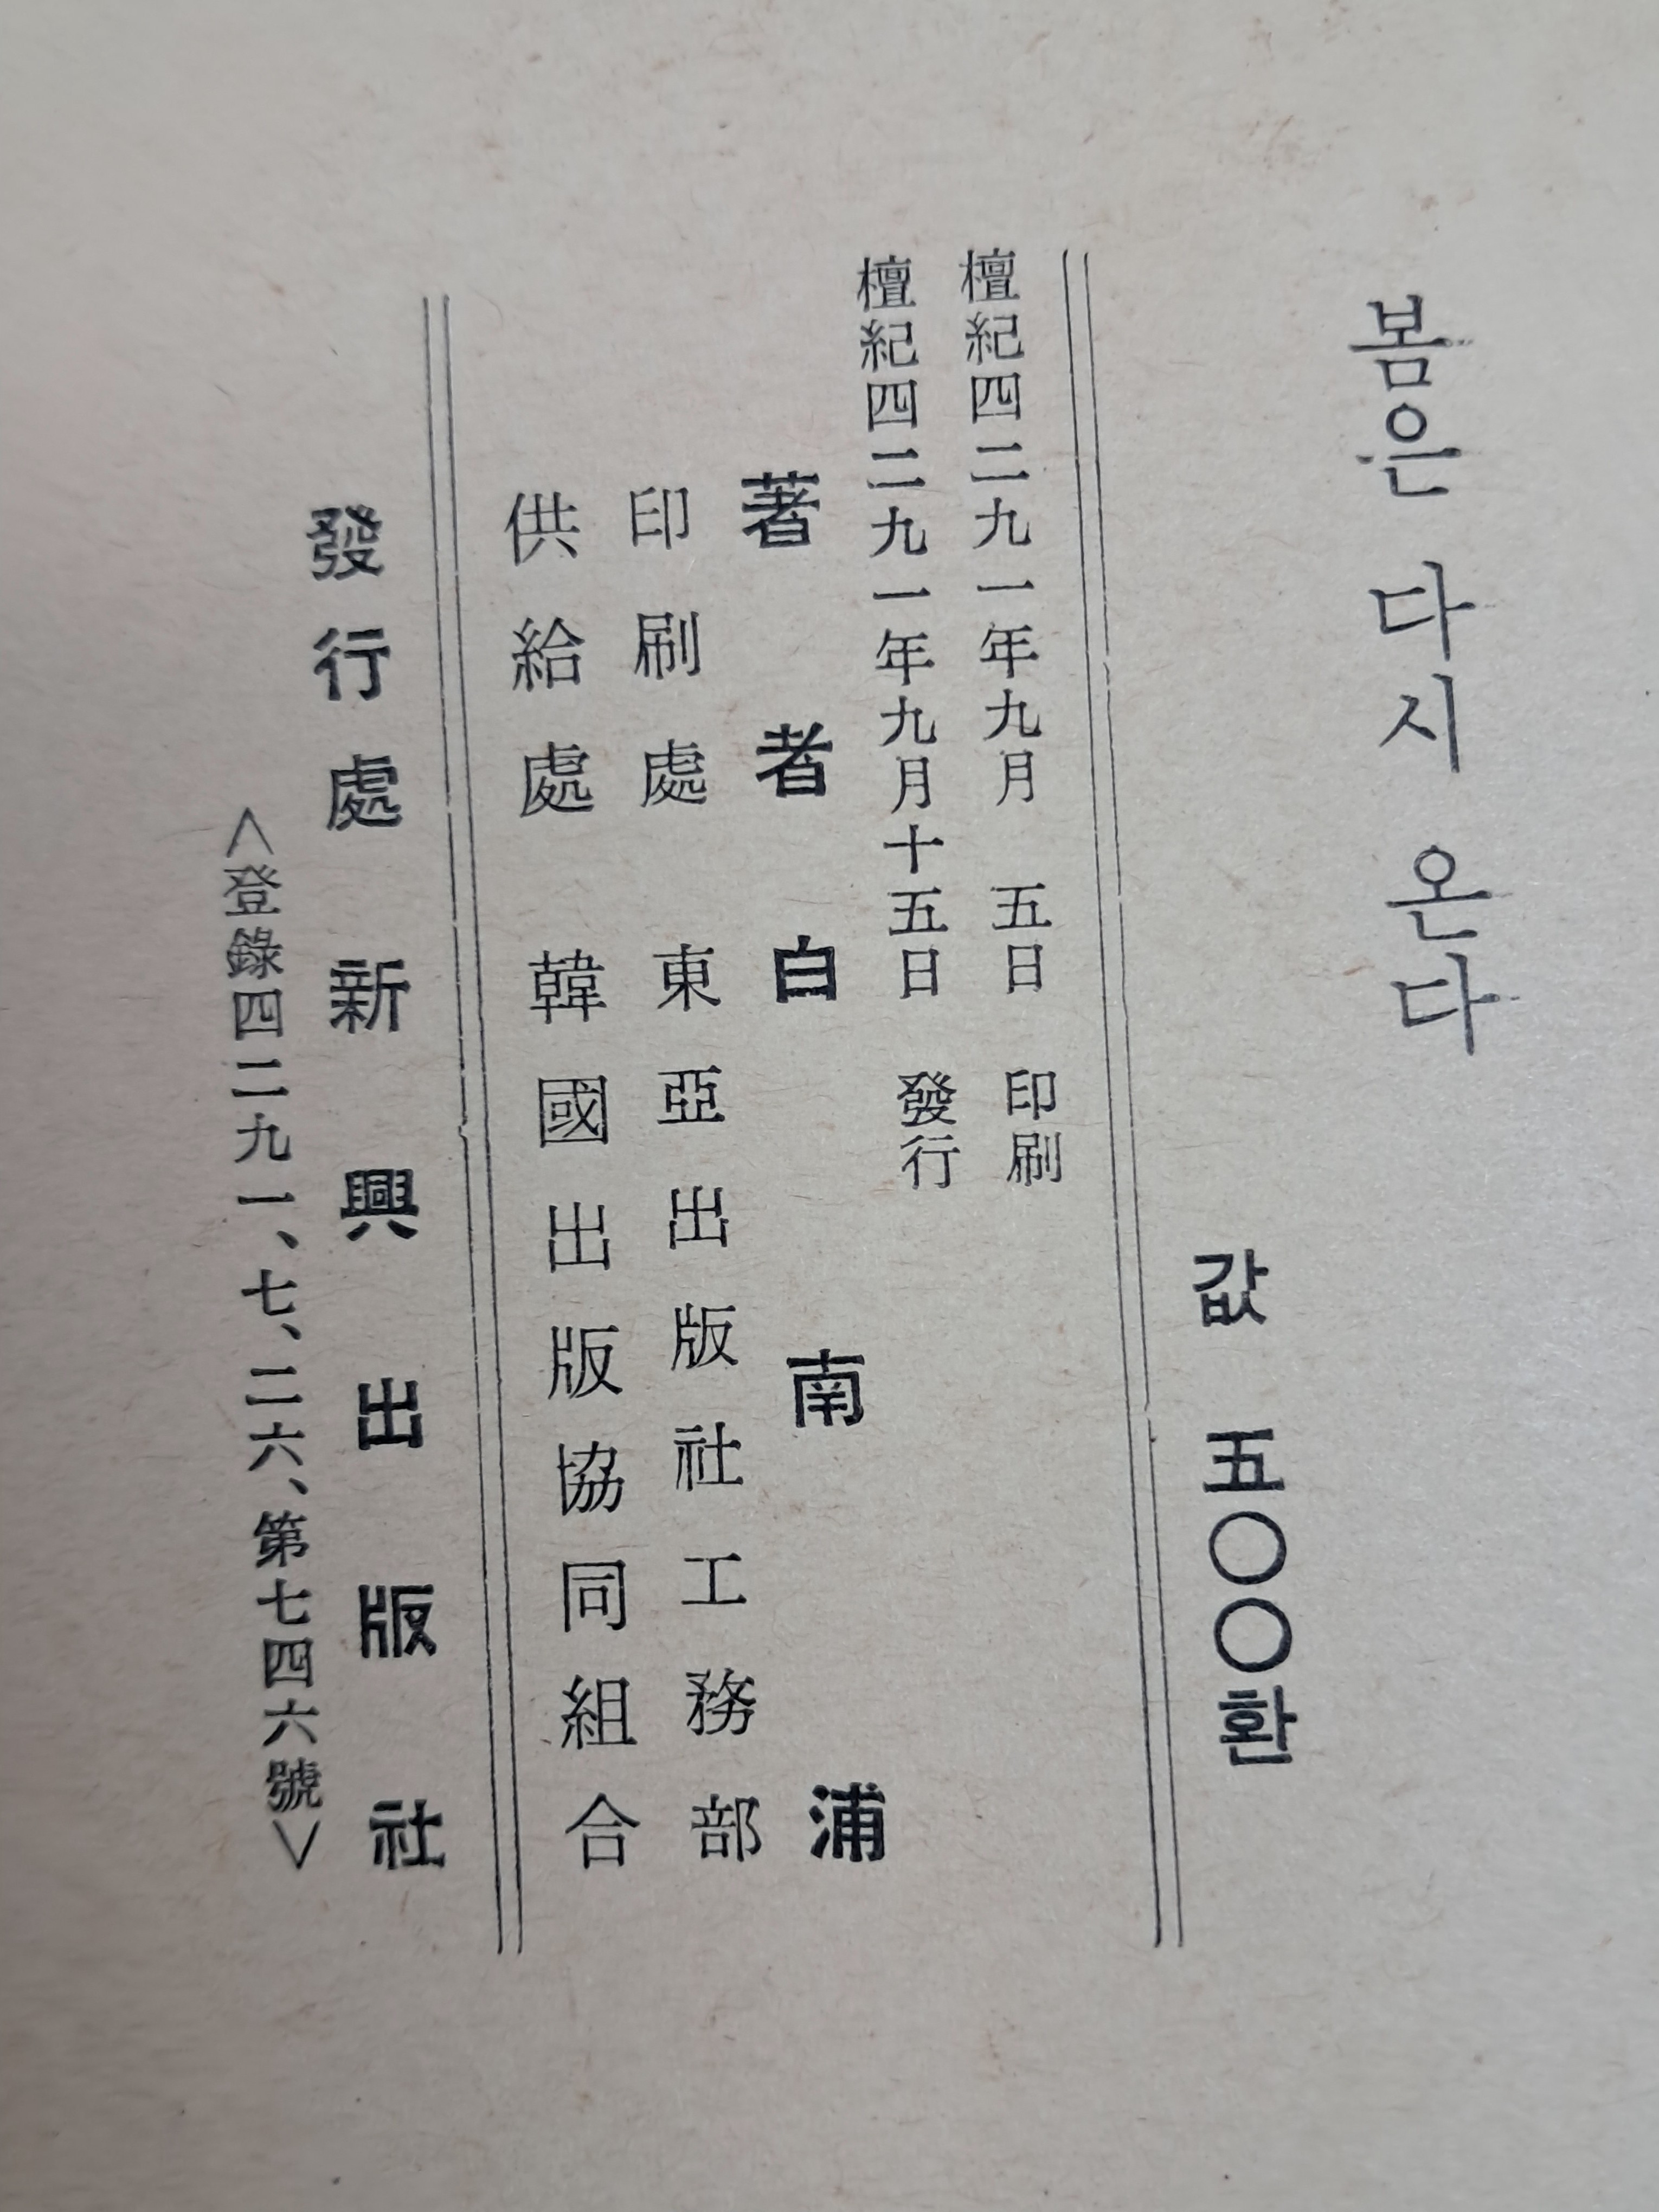 봄은 다시 온다
값 五〇〇환
檀紀四二九一年九月 五日 印刷
檀紀四二九一年九月十五日 發行
著者 白南浦
印刷處 東亞出版社工務部
供給處 韓國出版協同組合
發行處 新興出版社
<登錄四二九一、七、二六、第七四六號>